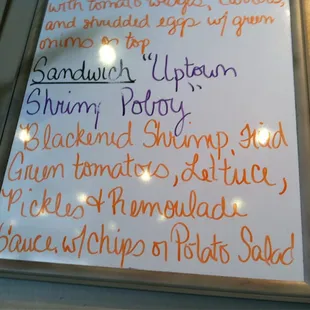 with tomato wedges,
and shredded eggs w/ green
onions on top
Sandwich "Uptown
Shrimp Poboy"
Blackened Shrimp, Fried
Green tomatoes, Lettuce,
Pickles & Remoulade
Sauce w/ Chips or Potato Salad